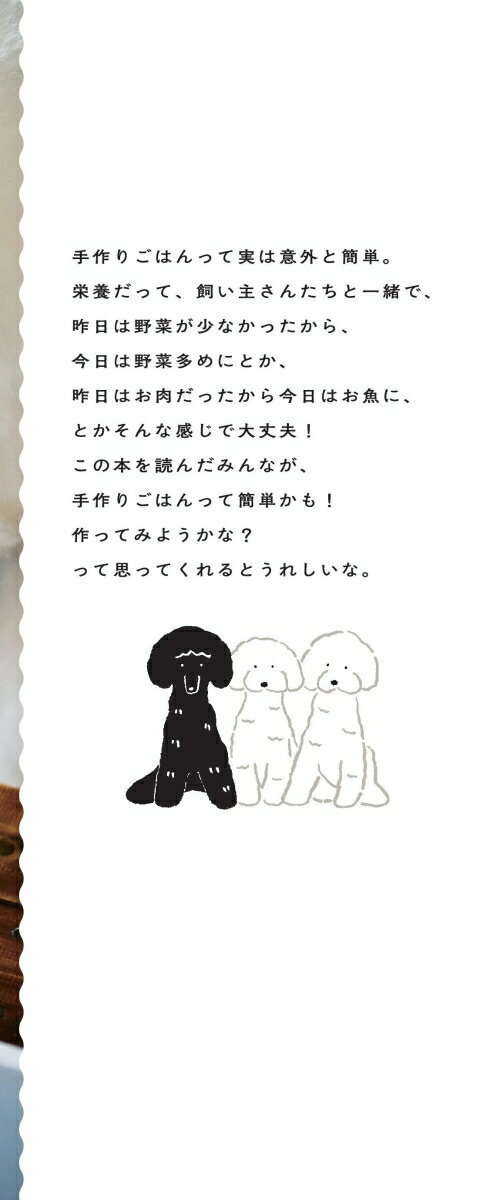 手作りごはんって実は意外と簡単。
栄養だって、飼い主さんたちと一緒で、
昨日は野菜が少なかったから、
今日は野菜多めにとか、
昨日はお肉だったから今日はお魚に、
とかそんな感じで大丈夫！
この本を読んだみんなが、
手作りごはんって簡単かも！
作ってみようかな？
って思ってくれるとうれしいな。